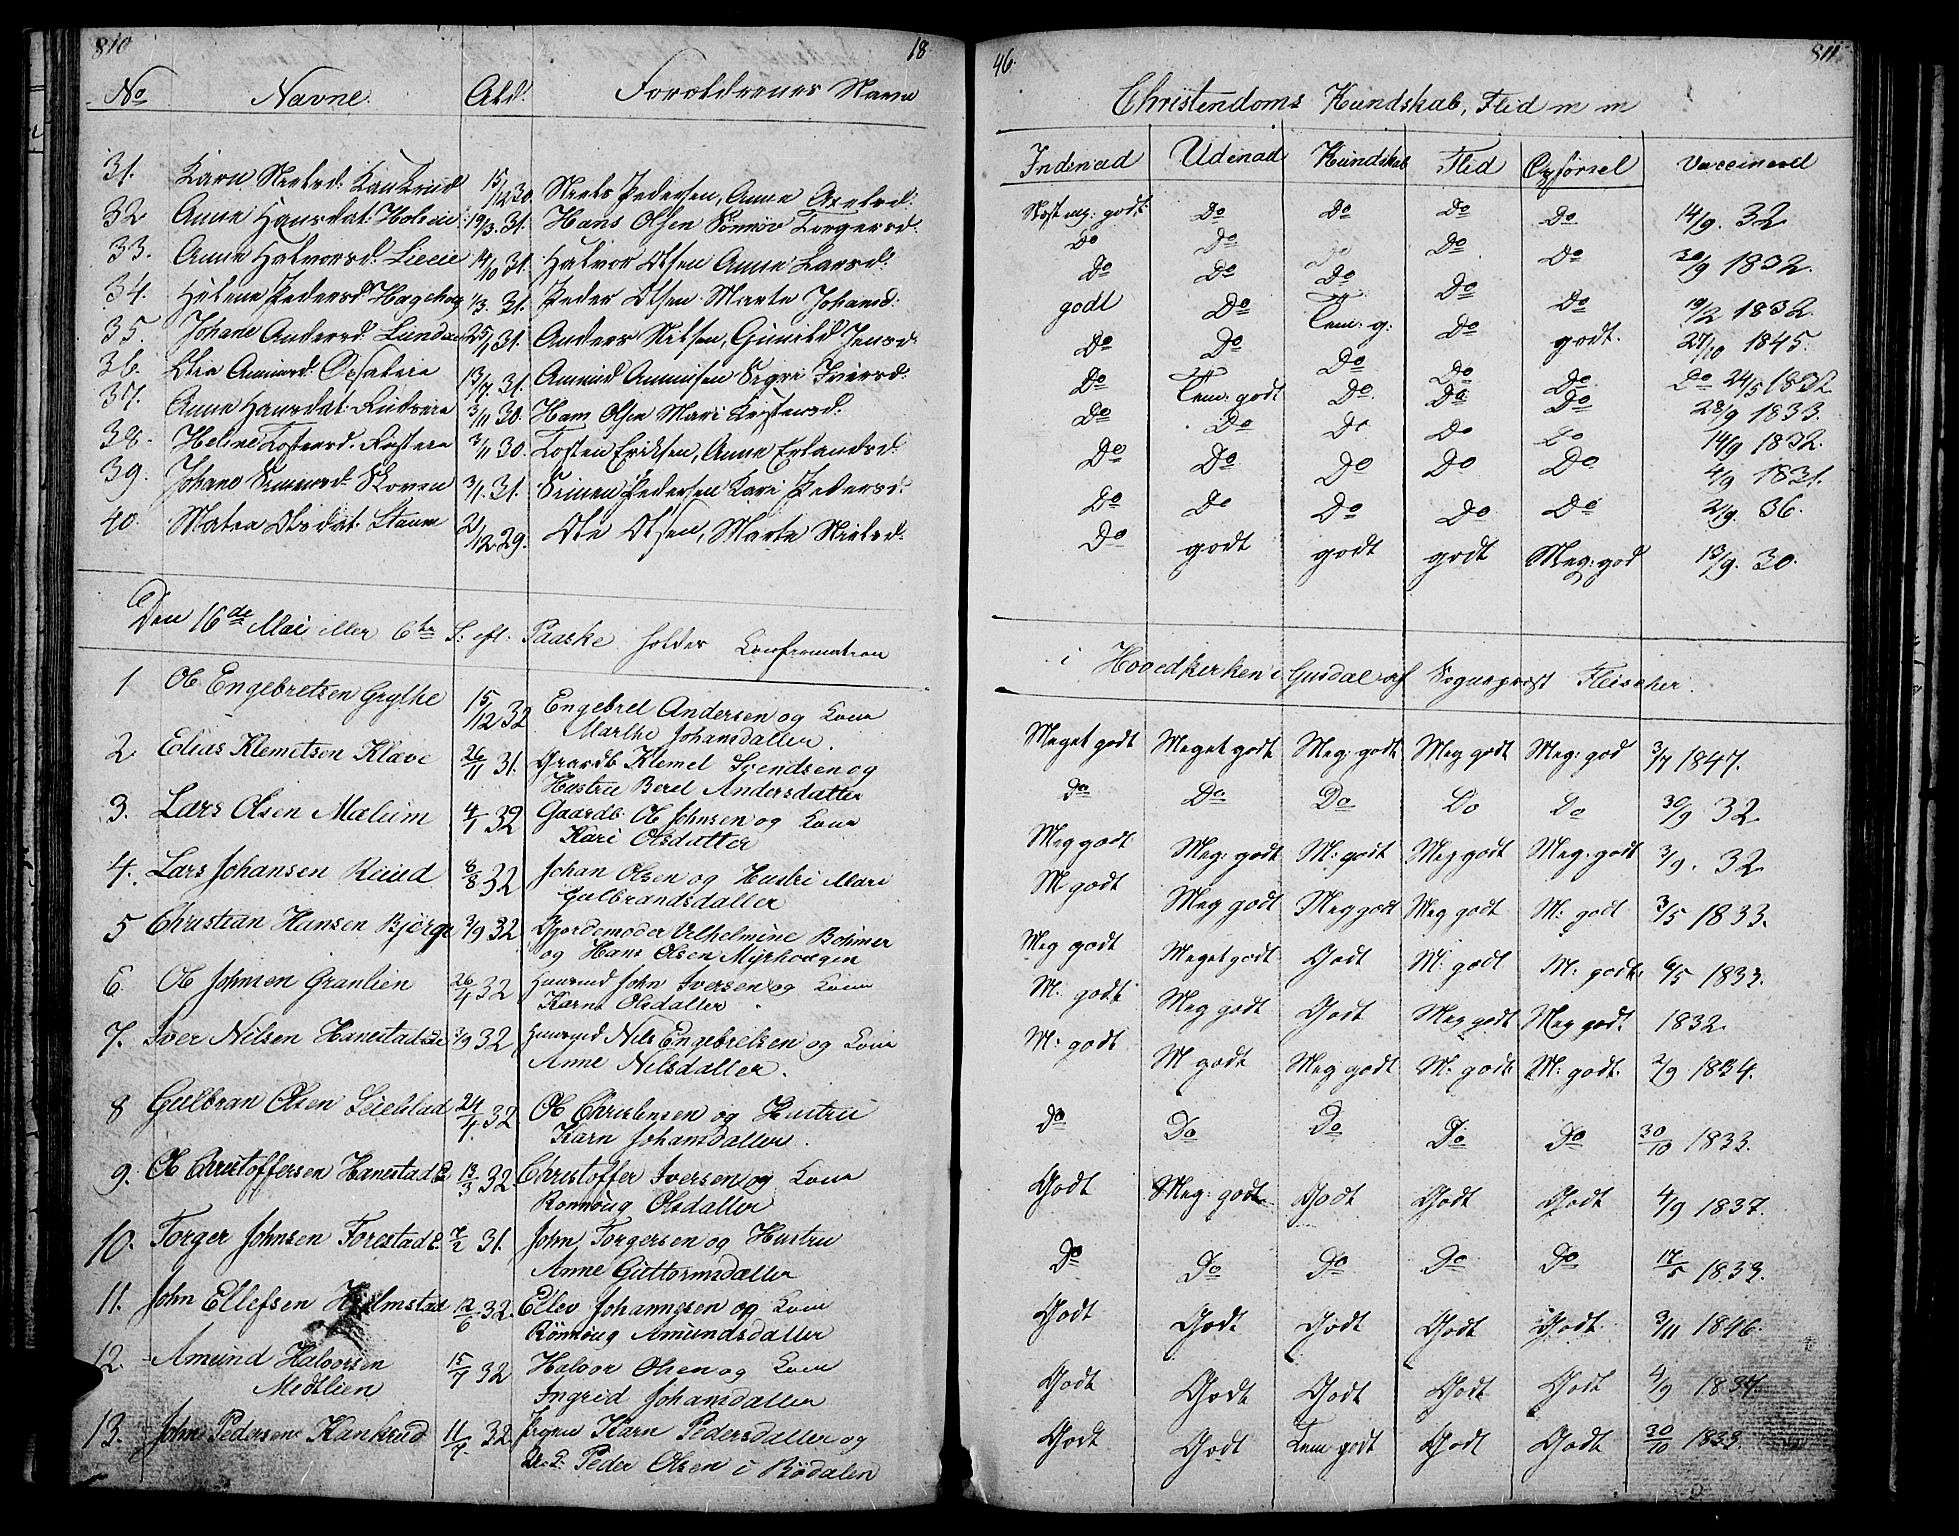 810 18
No Navne. Ald. Forældrenes Navne
31. Karn Nielsd. Kankrud 15/12 30. Niels Pedersen, Anne Axelsd.
32 Anne Hansdat: Holein 19/3. 31. Hans Olsen Sønnøv Torgersd.
33. Anne Halvorsd. Lieeie 14/10 31. Halvor Olsen Anne Larsd.
34. Helene Pedersd. Hagehoug 1/3. 31. Peder Olsen Marte Johansd:
35. Johane Andersd. Lundeen 25/1 31. Anders Nilsen, Gunild Jensd.
36. Amunsd. 13/7 31. Amund Amundsen Sigri Iversd:
37. Anne Hansdat: Rudseie 3/11 30. Hans Olsen Mari Kistensd.
38. Heline Tostensd. 3/11 30. Tosten Eriksen, Anne Erlandsd.
39. Johane Simensd. Skoven 3/1. 31. Simen Pedersen Kari Pedersd.
40. Matea Olsdat. Staum 21/12 29. Ole Olsen, Marte Nielsd.
Den 16de Mai eller 6te S. eft: Paaske holdes Confirmation
1 Ol Engebretsen Grythe 15/12 32 Engebret Andersen og Kone
Marthe Johansdatter.
2 Elias Klemetsen Klave 26/11 31. Gaardb. Klemet Svendsen og
Hustru Beret Andersdatter
3. Lars Olsen Mælum 4/1 32 Gaardb. Ol Johnsen og Kone
Kari Olsdatter
4. Lars Johansen Ruud 8/8 32 Johan Olsen og Hustru Mari
Gulbrandsdatter
5 Christian Hansen Bjerge 3/9 32 Gjordemoder Vilhelmine Bohmer
og Hans Olsen Myrhougen
6. Ol Johnsen Granlien 26/4 32 Huusmd John Iversen og Kone
Karn Olsdatter
7. Iver Nilsen Hanestad E. 3/9 32 Huusmd Nils Engebretsen og Kone
Anne Nilsdatter.
8 Gulbran Olsen 24/4. 32 Ol Christensen og Hustru
Karn Johansdatter.
9. Ol Christoffersen Hanestad E. 13/3 32 Christoffer Iversen og Kone
Ronnoug Olsdatter
10. Torger Johnsen Forestad E. 7/2 31. John Torgersen og Hustru
Anne Guttormsdatter
11. John Ellefsen Hjelmstad 12/6 32. Ellev Johannesen og Kone
Rønnoug Amundsdatter
12. Amund Halvorsen 15/7 32 Halvor Olsen og Kone
Medtlien Ingrid Johansdatter
13. John Pedersen Kankrud 11/7. 32 Pigen Karn Pedersdatter og
Peder Olsen i Bødalen
46. 811.
Christendoms Kundskab, Flid m m
Indenad Udenad Kundskab Flid Opførsel Vaccinered
Nost mg: godt Do Do Do Do 14/9. 32
Do Do Do Do Do 30/9 1832.
Do Do Do Do Do 19/2 1832.
godt Do Tem: g: Do godt. 27/10 1845.
Do Do Do Do Do Do 24/5 1832
Do Tem: godt Do Do Do 28/9 1833.
Do Do Do Do Do 14/9 1832.
Do Do Do Do Do 4/9 1831.
Do Do Do Do Do 2/9. 36.
Do godt godt godt Meg: god 13/9. 30.
i Hovedkerken i Gusdal af Sognepræst Fleischer.
Meget godt Meget godt Meg: godt Meg godt Meg: god 3/7 1847.
Do Do Do Do Do 30/9 32
Meg godt Meg: godt M: godt Meg godt Meg: godt 3/9. 32
M godt Meg godt Meg godt Meg godt M: godt 3/5 1833.
Meg godt Meget godt Godt M: godt M: godt: 6/5 1833.
M: godt Meg godt Godt Meg godt Meg godt. 1832.
M: godt M godt Meg godt M: godt M: godt. 2/9 1834.
Do Do Do Do Do 30/10 1833.
Godt Meg: godt Godt Godt Godt 4/9 1837.
Do Do Do Do Do 17/5 1833.
Godt Godt Godt Godt Godt. 3/11 1846.
Godt Godt Godt Godt Godt 4/9 1837.
Godt Godt Tem godt Godt Godt 30/10 1833